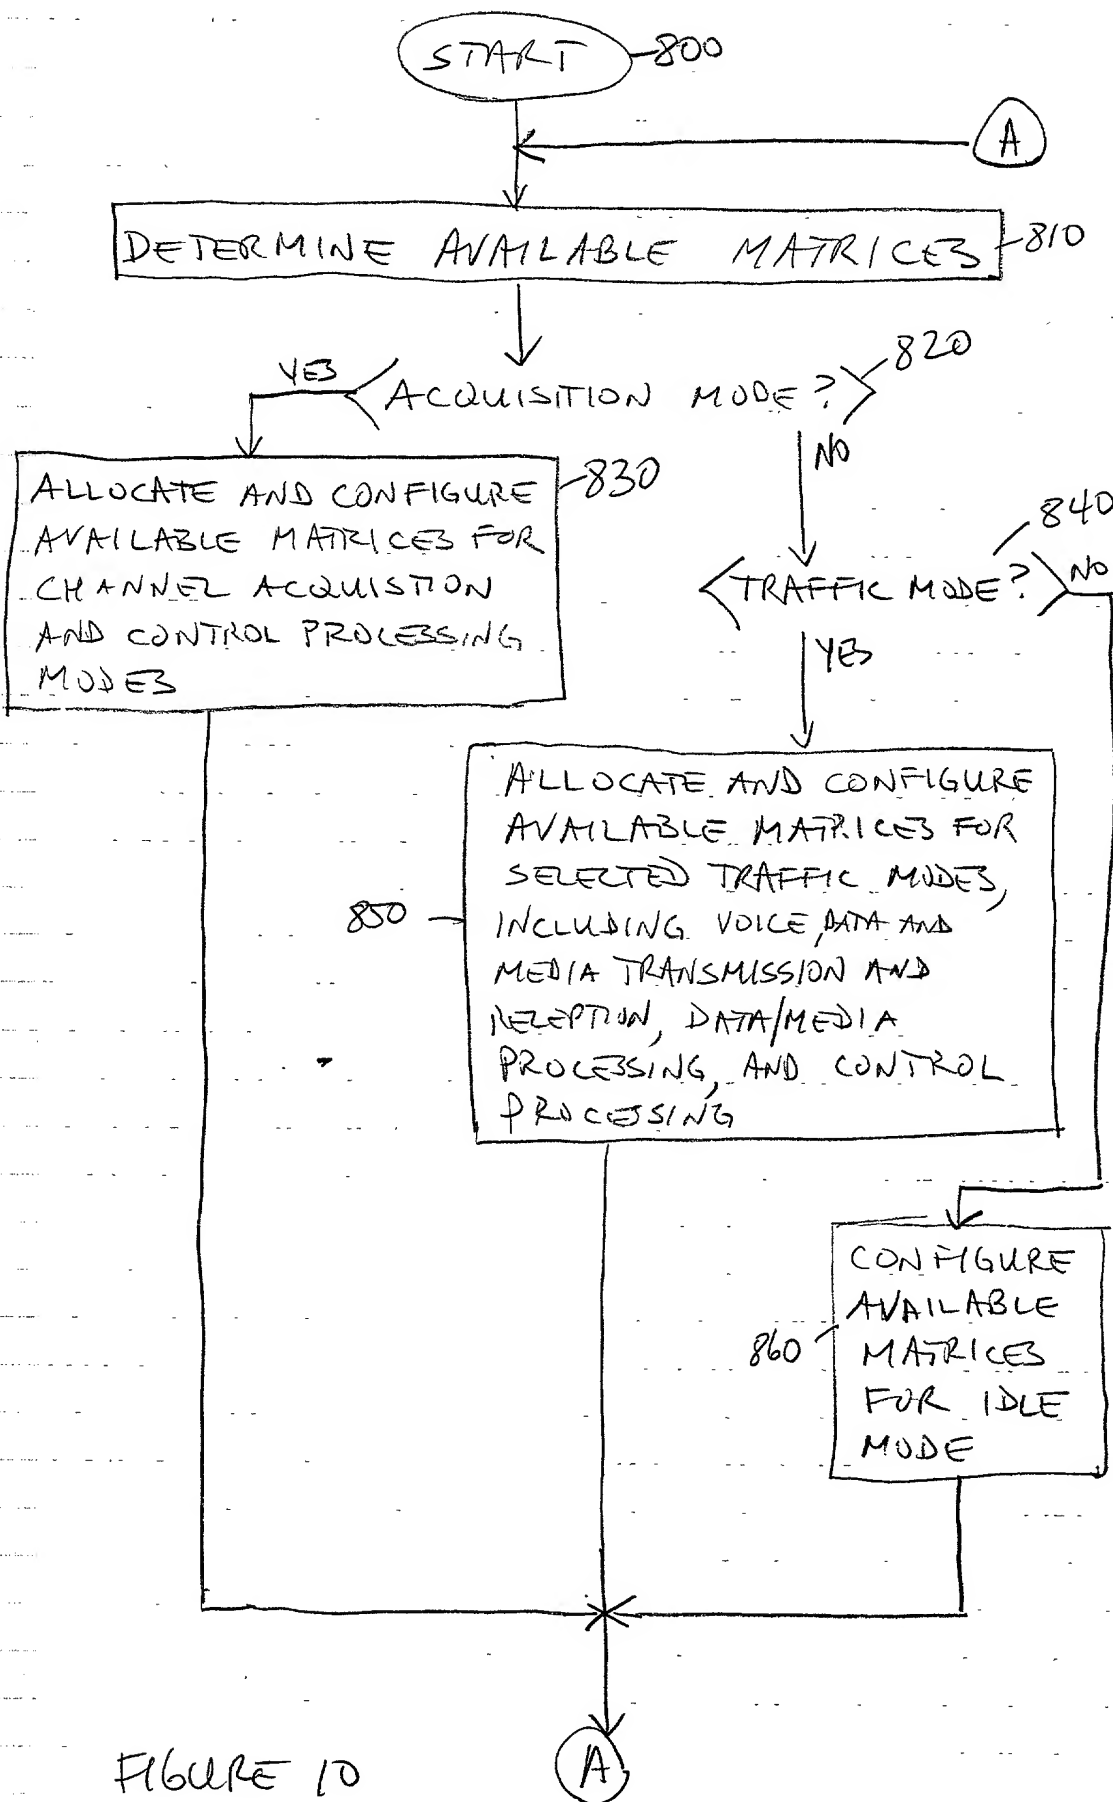 START
800
A
DETERMINE AVAILABLE MATRICES
810
820
YES
ACQUISITION MODE?
NO
ALLOCATE AND CONFIGURE
AVAILABLE MATRICES FOR
CHANNEL ACQUISTION
AND CONTROL PROCESSING
MODES
830
840
TRAFFIC MODE?
NO
YES
ALLOCATE AND CONFIGURE
AVAILABLE MATRICES FOR
SELECTED TRAFFIC MODES,
INCLUDING VOICE, DATA AND
MEDIA TRANSMISSION AND
RECEPTION, DATA/MEDIA
PROCESSING, AND CONTROL
PROCESSING
850
CONFIGURE
AVAILABLE
MATRICES
FOR IDLE
MODE
860
FIGURE 10
A